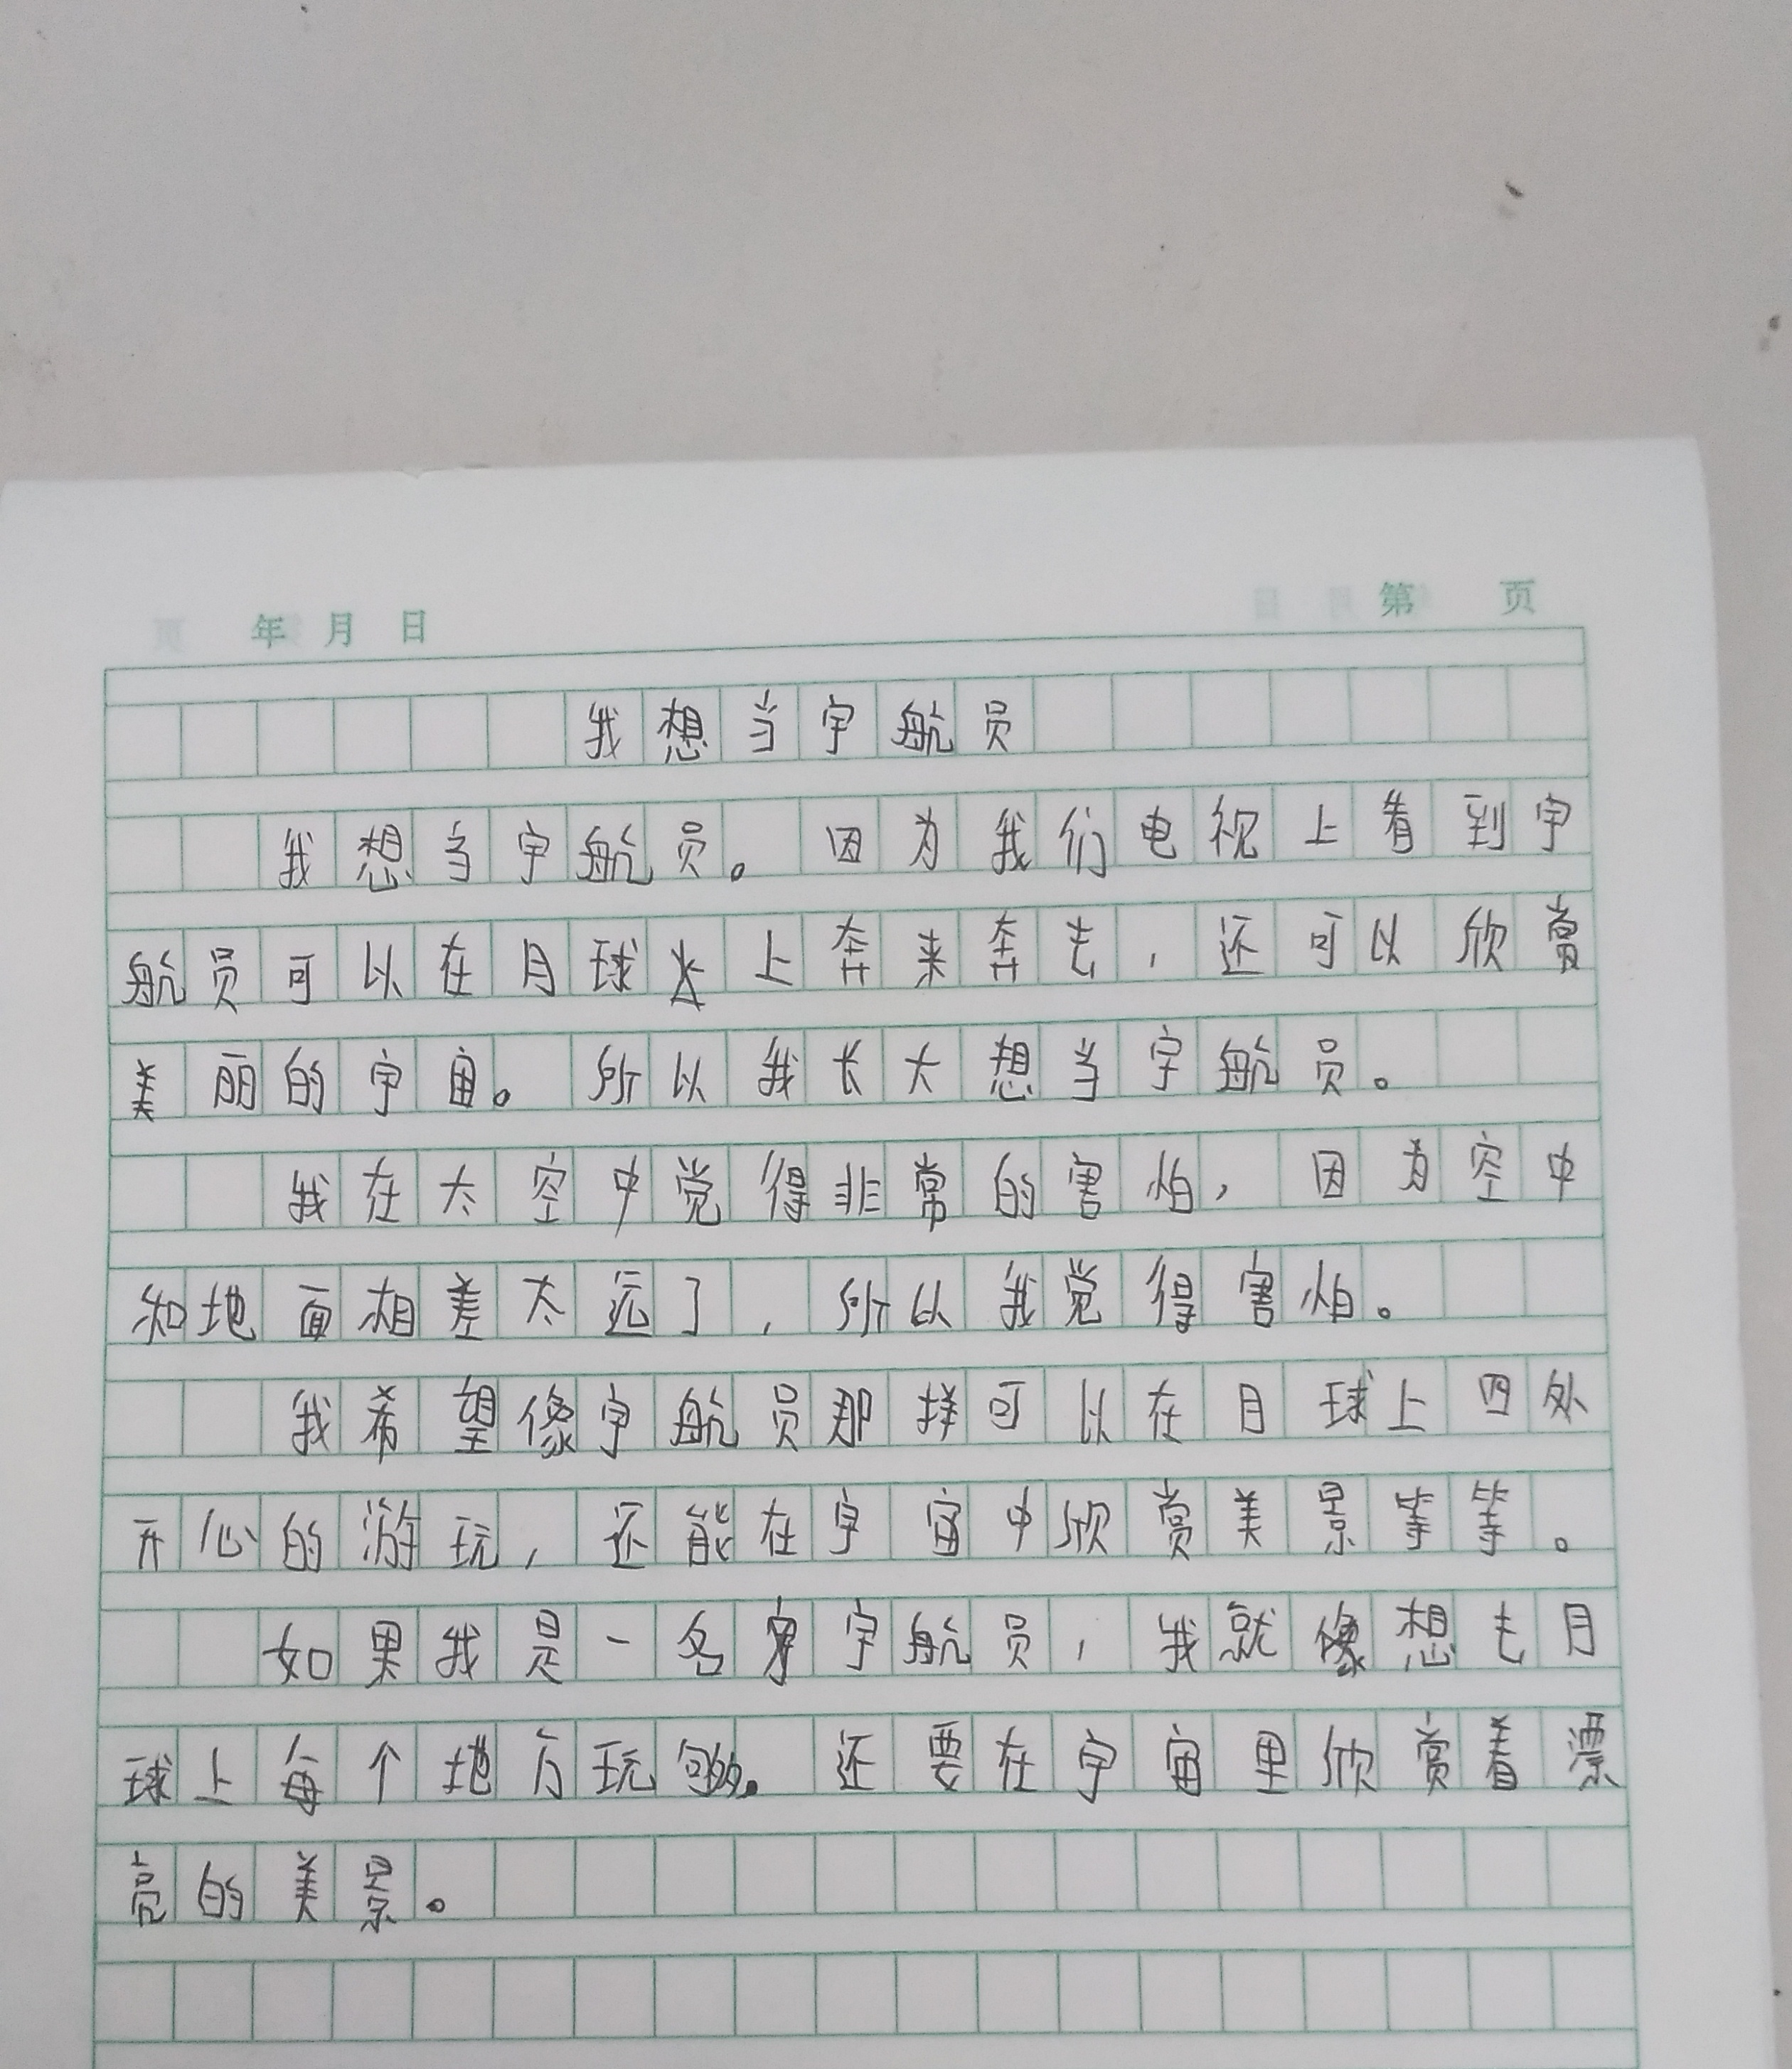 年 月 日 第 页
我想当宇航员
我想当宇航员。因为我们电视上看到宇
航员可以在月球上奔来奔去，还可以欣赏
美丽的宇宙。所以我长大想当宇航员。
我在太空中觉得非常的害怕，因为空中
和地面相差太远了，所以我觉得害怕。
我希望像宇航员那样可以在月球上四处
开心的游玩，还能在宇宙中欣赏美景等等。
如果我是一名宇航员，我就像想去月
球上每个地方玩够。还要在宇宙里欣赏着漂
亮的美景。